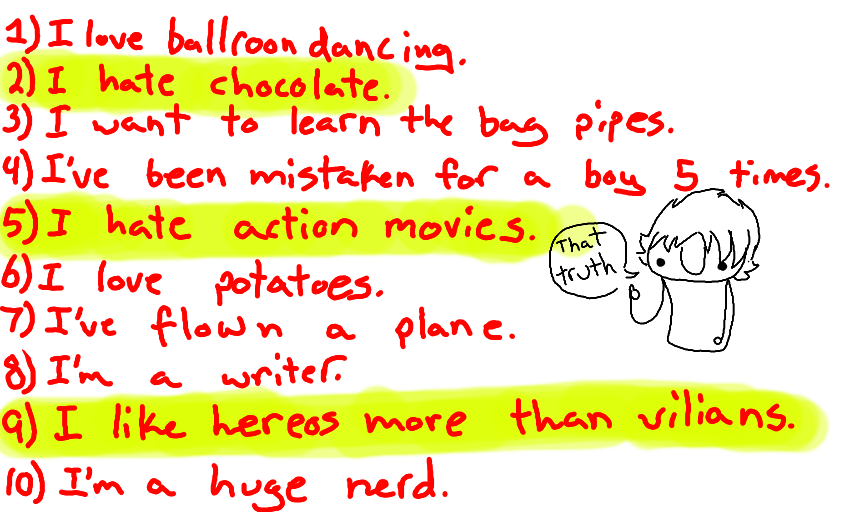 1) I love ballroon dancing.
2) I hate chocolate.
3) I want to learn the bag pipes.
4) I've been mistaken for a boy 5 times.
5) I hate action movies.
That
truth
6) I love potatoes.
7) I've flown a plane.
8) I'm a writer.
9) I like hereos more than vilians.
10) I'm a huge nerd.